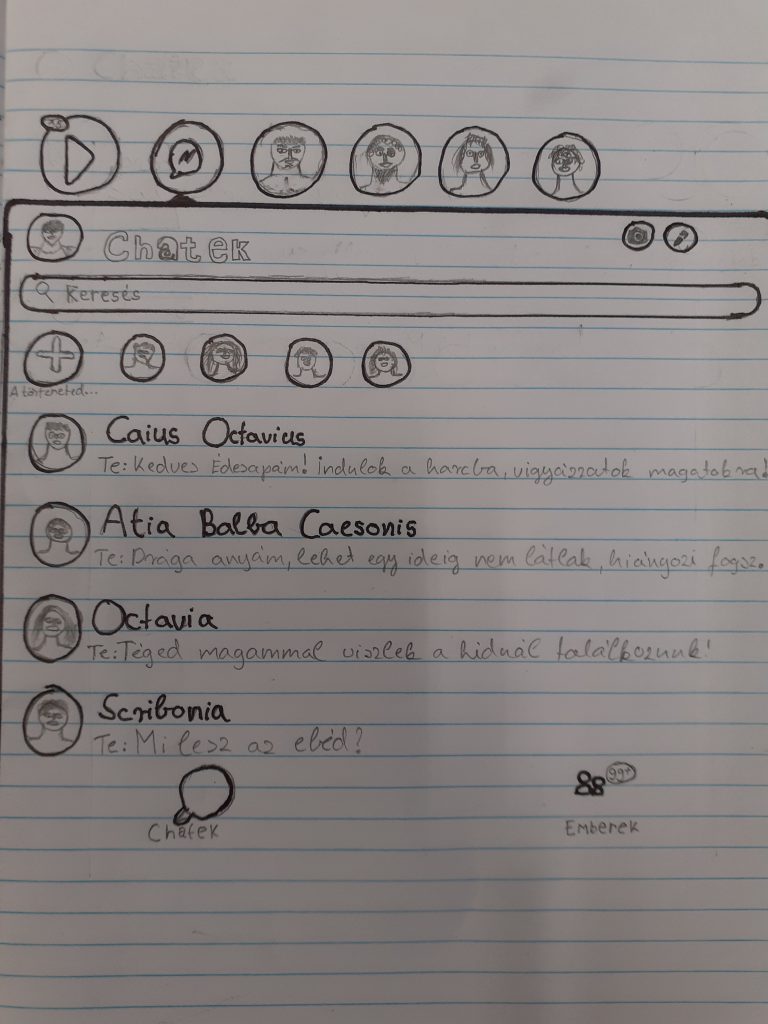 Chatek
Keresés
A történeted...
Caius Octavius
Te: Kedves Édesapám! indulok a harcba, vigyázzatok magatokra!
Atia Balba Caesonis
Te: Drága anyám, lehet egy ideig nem látlak, hiányozi fogsz.
Octavia
Te: Téged magammal viszlek a hidnál találkozunk!
Scribonia
Te: Mi lesz az ebéd?
99+
Chatek
Emberek